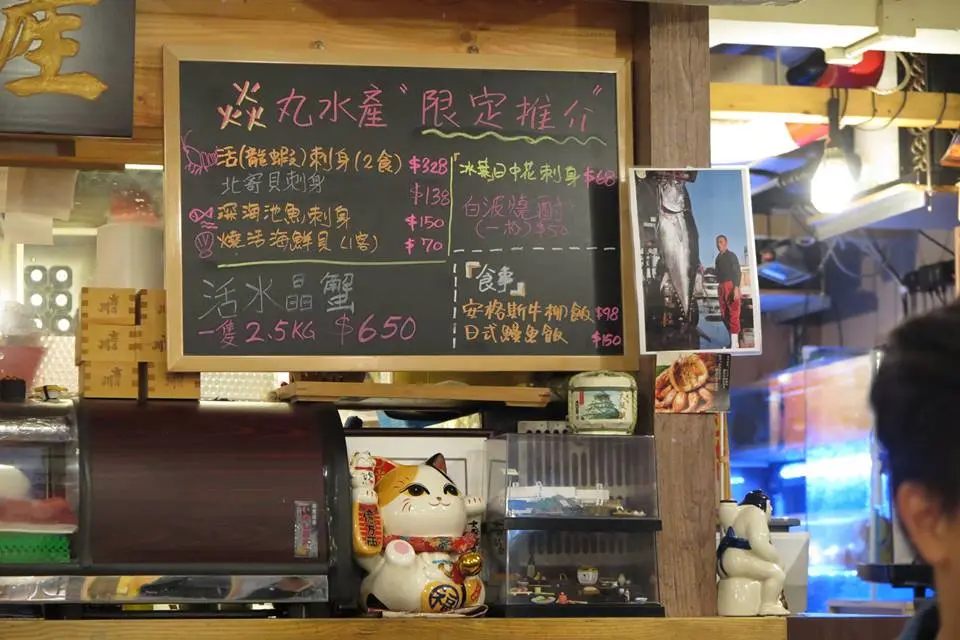 産
焱丸水產"限定推介"
活(龍蝦)刺身(2食) $328
北寄貝刺身 $138
深海池魚刺身 $150
燒活海鮮貝(1客) $70
活水晶蟹
一隻2.5KG $650
冰葉日中花刺身 $68
白波燒酎
(一杯)$50
『食事』
安格斯牛柳飯 $98
日式鰻魚飯 $150